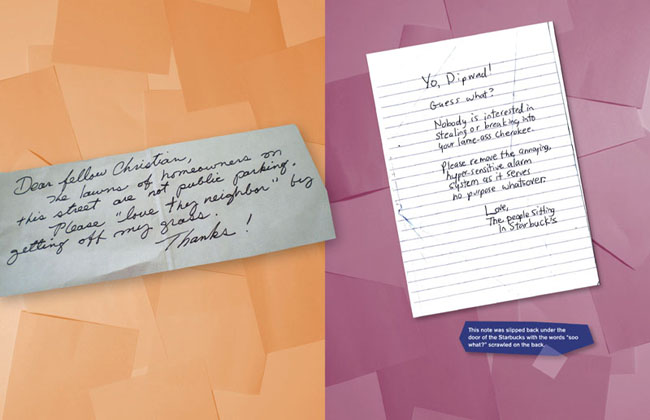 Dear fellow Christian,
The lawns of homeowners on
this street are not public parking.
Please "love thy neighbor" by
getting off my grass.
Thanks!
Yo, Dipwad!
Guess what?
Nobody is interested in
stealing or breaking into
your lame-ass cherokee.
Please remove the annoying,
hyper-sensitive alarm
system as it serves
no purpose whatsover.
Love,
The people sitting
in Starbucks
This note was slipped back under the
door of the Starbucks with the words "soo
what?" scrawled on the back.